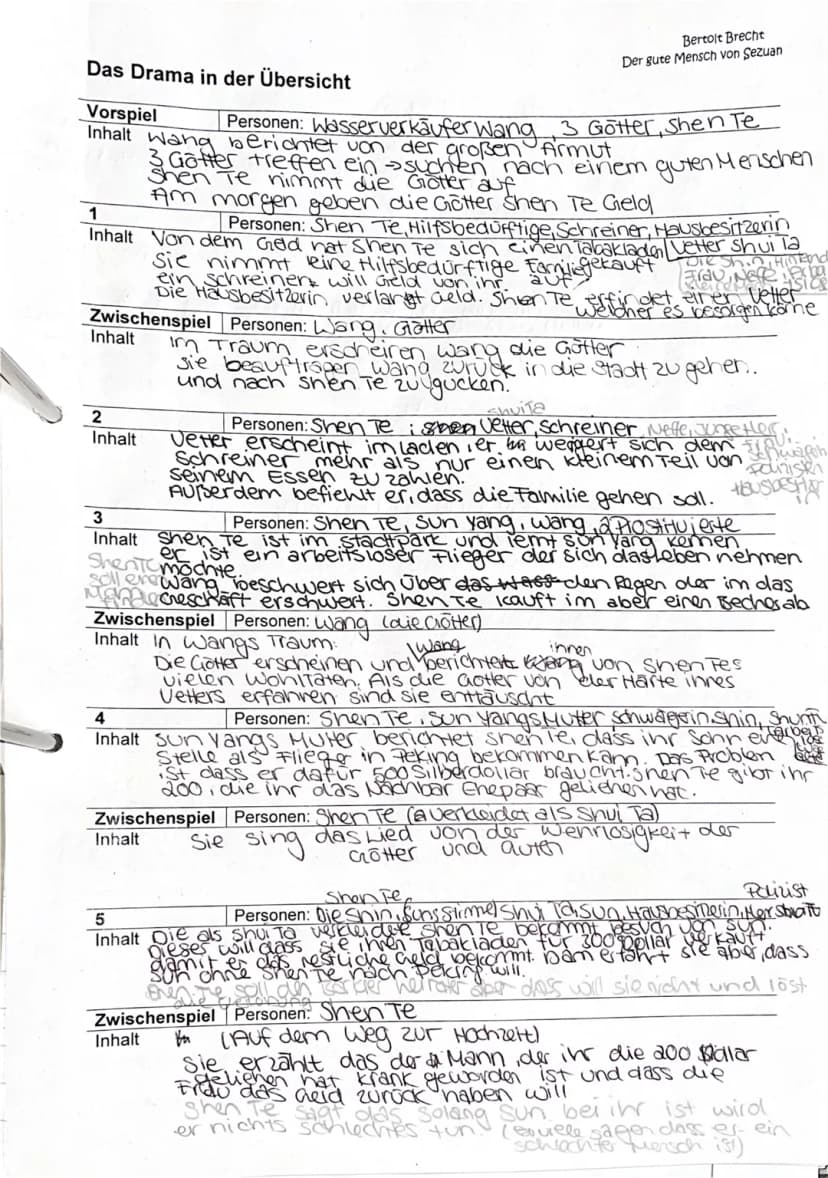 Bertolt Brecht
Der gute Mensch von Sezuan
Das Drama in der Übersicht
Vorspiel Personen: Wasserverkäufer Wang, 3 Götter, Shen Te
Inhalt Wang berichtet von der großen Armut
3 Götter treffen ein → suchen nach einem guten Menschen
Shen Te nimmt die Götter auf
Am morgen geben die Götter Shen Te Geld
1 Personen: Shen Te, Hilfsbedürftige, Schreiner, Hausbesitzerin
Inhalt Von dem Geld hat Shen Te sich einen Tabakladen gekauft Vetter Shui Ta
Sie nimmt eine Hilfsbedürftige Familie auf. Die Shin,
ein schreiner will Geld von ihr. Frau, Neffe,
Die Hausbesitzerin, verlangt Geld. Shen Te erfindet einen Vetter
welcher es besorgen könne
Zwischenspiel Personen: Wang, Götter
Inhalt im Traum erscheinen Wang die Götter
sie beauftragen Wang zurück in die Stadt zu gehen.
und nach Shen Te zu gucken.
Shui Ta
2 Personen: Shen Te, Vetter, Schreiner Neffe,
Inhalt Vetter erscheint im Laden, er weigert sich dem
Schreiner mehr als nur einen kleinem Teil von
seinem Essen zu zahlen.
Außerdem befiehlt er, dass die Familie gehen soll.
3 Personen: Shen Te, Sun Yang, Wang, 2 Prostituierte
Inhalt Shen Te ist im Stadtpark und lernt Sun Yang kennen
er ist ein arbeitsloser Flieger der sich das Leben nehmen
möchte.
Wang beschwert sich über das den Regen der im das
Geschäft erschwert. Shen Te kauft im aber einen Becher ab
Shen Te
soll
Zwischenspiel Personen: Wang (die Götter)
Inhalt in Wangs Traum:
Die Götter erscheinen und Wang berichtet ihnen von Shen Tes
vielen Wohltaten. Als die Götter von der Härte ihres
Vetters erfahren sind sie enttäuscht
4 Personen: Shen Te, Sun Yangs Mutter Schwägerin Shin,
Inhalt Sun Yangs Muter berichtet Shen Te, dass ihr Sohn eine
Stelle als Flieger in Peking bekommen kann. Das Problem
ist dass er dafür 500 Silberdollar braucht. Shen Te gibt ihr
200, die ihr das Nachbar Ehepaar geliehen hat.
Zwischenspiel Personen: Shen Te (verkleidet als Shui Ta)
Inhalt Sie sing das Lied von der Wehrlosigkeit der
Götter und Guten
Shen Te, Polizist
5 Personen: Die Shin, Shui Ta, Sun, Hausbesitzerin, Herr Shu Fu
Inhalt Die als Shui Ta verkleidete Shen Te bekommt besuch von Sun.
Dieses will dass sie ihren Tabakladen für 300 Dollar verkauft
damit er das restliche Geld bekommt. Dann erfährt sie aber, dass
Sun ohne Shen Te nach Peking will.
Shen Te soll den heiraten aber das will sie nicht und löst
Zwischenspiel Personen: Shen Te
Inhalt (Auf dem Weg zur Hochzeit)
Sie erzählt das der Mann, der ihr die 200 Dollar
geliehen hat krank geworden ist und dass die
Frau das Geld zurück haben will
Shen Te sagt das solang Sun bei ihr ist wird
er nichts schlechtes tun. (viele sagen dass er ein
schlechter Mensch ist)